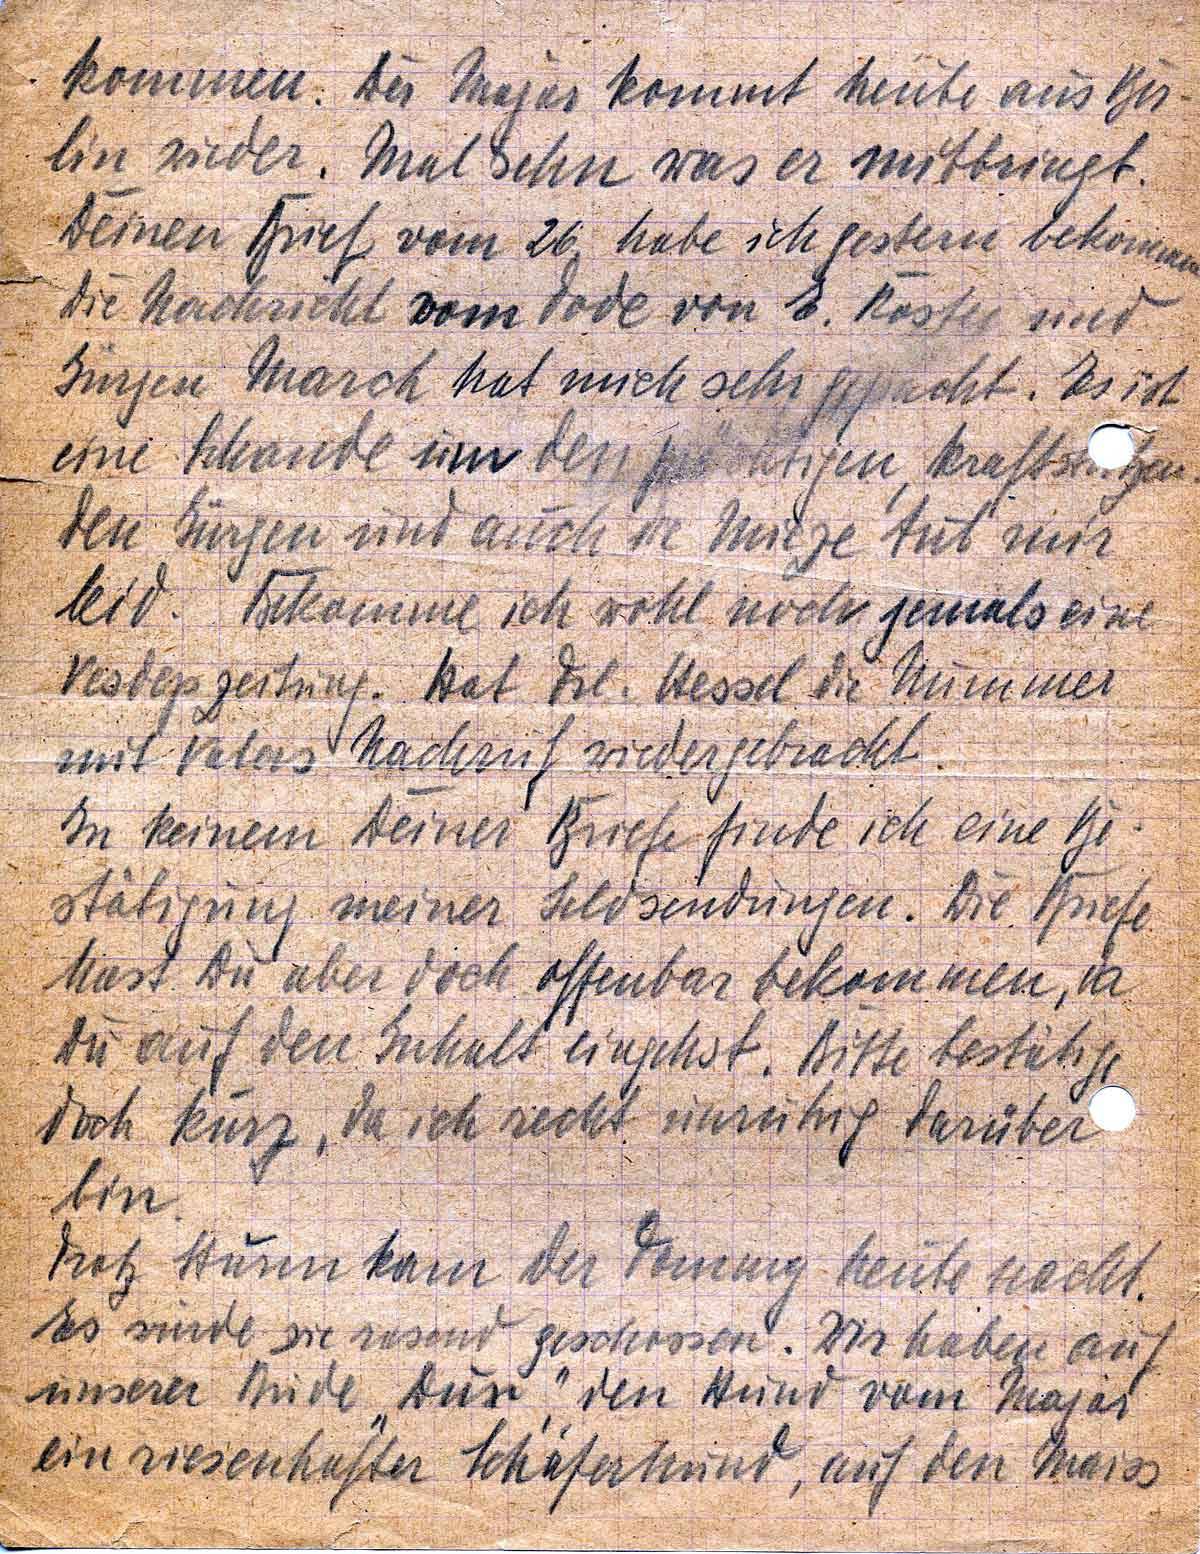 kommen. Der Major kommt heute aus Ber
lin wieder. Mal sehn was er mitbringt.
Deinen Brief vom 26. habe ich gestern bekommen
Die Nachricht vom Tode von E. Köster und
Jürgen March hat mich sehr gepackt. Es ist
eine Schande um den prächtigen, kraftstrotzen
den Jürgen und auch die Mieze tut mir
leid. Bekomme ich wohl noch jemals eine
Vesdepzeitung. Hat Frl. Hessel die Nummer
mit Vaters Nachruf wiedergebracht.
In keinem Deiner Briefe finde ich eine Be-
stätigung meiner Geldsendungen. Die Briefe
hast Du aber doch offenbar bekommen, da
Du auf den Inhalt eingehst. Bitte bestätige
doch kurz, da ich recht unruhig darüber
bin.
Trotz Sturm kam der Tommy heute nacht.
Es wurde wie rasend geschossen. Wir haben auf
unserer Bude „ " den Hund vom Major
ein riesenhafter Schäferhund, auf den